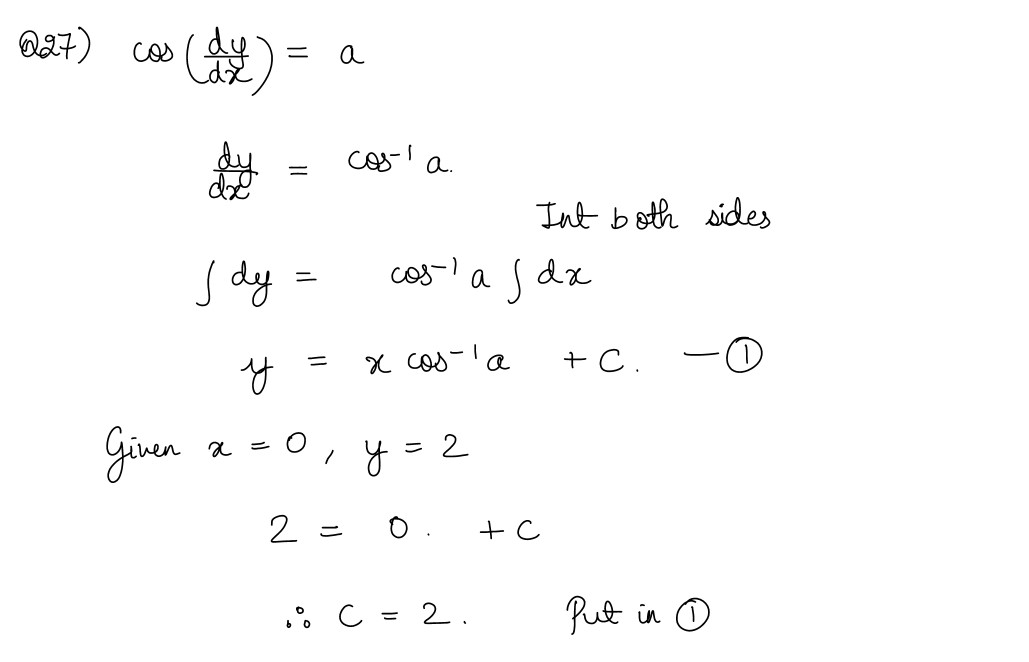 Q27) cos(dy/dx) = a
dy/dx = cos⁻¹ a.
Int both sides
∫ dy = cos⁻¹ a ∫ dx
y = x cos⁻¹ a + C. — ①
Given x = 0, y = 2
2 = 0. + C
∴ C = 2. Put in ①